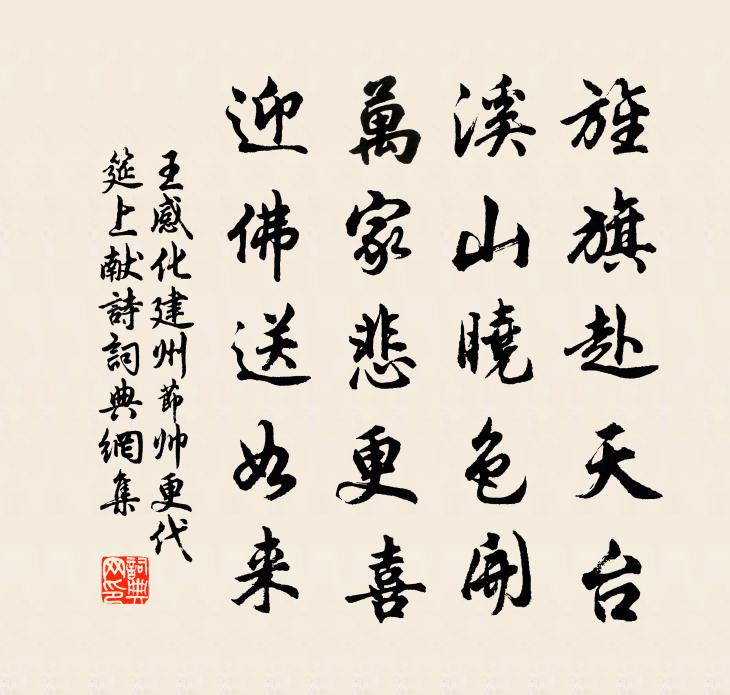 旌旗赴天台
溪山曉色開
萬家悲更喜
迎佛送如来
王感化建州節帅更代
筵上献詩詞典網集
詞典
网印